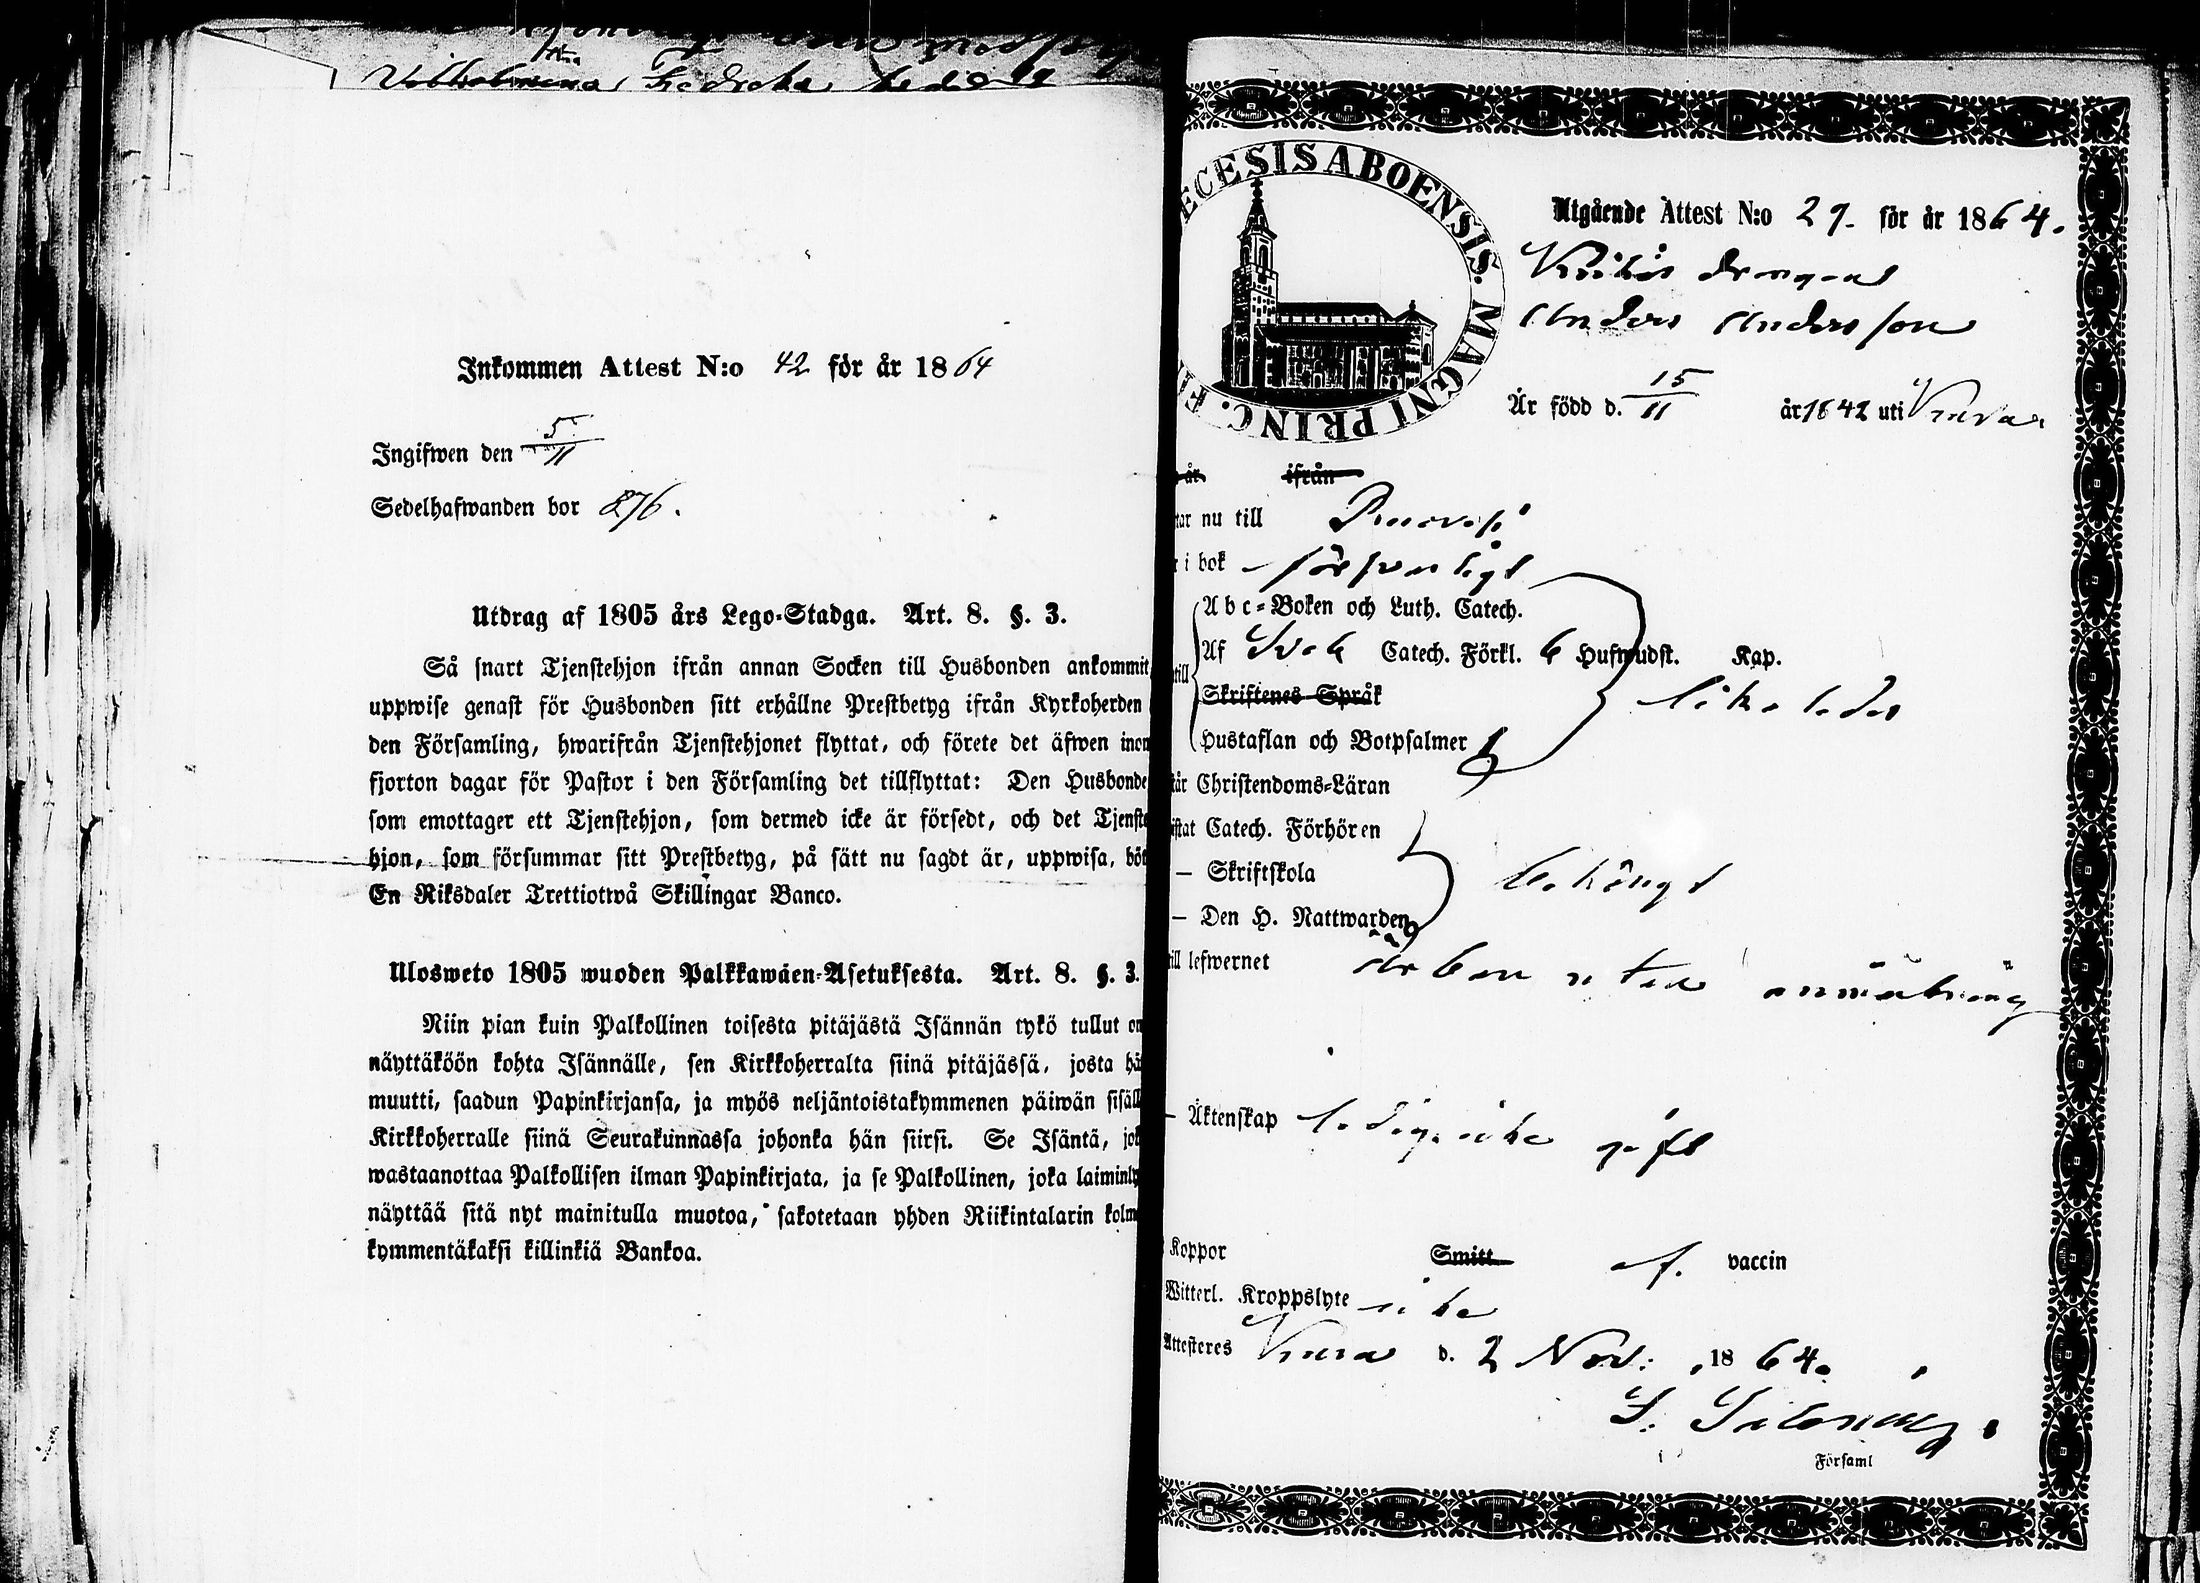 Inkommen Attest N:o 42 för år 1864
Ingifwen den 5/11
Sedelhafwanden bor 276.
Utdrag af 1805 års Lego-Stadga. Art. 8. §. 3.
Så snart Tjenstehjon ifrån annan Socken till Husbonden ankommit
uppwise genast för Husbonden sitt erhållne Prestbetyg ifrån Kyrkoherden
den Församling, hwarifrån Tjenstehjonet flyttat, och förete det äfwen inom
fjorton dagar för Pastor i den Församling det tillflyttat: Den Husbonde
som emottager ett Tjenstehjon, som dermed icke är försedt, och det Tjenste
hjon, som försummar sitt Prestbetyg, på sätt nu sagdt är, uppwisa, böt
En Riksdaler Trettiotwå Skillingar Banco.
Ulosweto 1805 wuoden Palkkawäen-Asetuksesta. Art. 8. §. 3.
Niin pian kuin Palkollinen toisesta pitäjästä Isännän tykö tullut on
näyttäköön kohta Isännälle, sen Kirkkoherralta siinä pitäjässä, josta hä
muutti, saadun Papinkirjansa, ja myös neljäntoistakymmenen päiwän sisäll
Kirkkoherralle siinä Seurakunnassa johonka hän siirsi. Se Isäntä, jok
wastaanottaa Palkollisen ilman Papinkirjata, ja se Palkollinen, joka laiminly
näyttää sitä nyt mainitulla muotoa, sakotetaan yhden Riikintalarin kolm
kymmentäkaksi killinkiä Bankoa.
ECESIS ABOENSIS. MAGNI PRINC. F
Utgående Attest N:o 29. för år 1864.
drängen
Anders Andersson
Är född d. 15/11 år 1842 uti Virmo
år ifrån
tar nu till
i bok försvarligt
Abc-Boken och Luth. Catech.
Af Sveb. Catech. Förkl. 6 Hufwudst. Kap.
till Skriftenes Språk likaledes
Hustaflan och Botpsalmer
tår Christendoms-Läran
istat Catech. Förhören
— Skriftskola behörigt
— Den H. Nattwarden
till lefwernet ärbar utan anmärkning
— Äktenskap ledig, icke gift
Koppor Smitt af vaccin
Witterl. Kroppslyte icke
Attesteres Virmo d. 2 Nov: 1864.
Församl